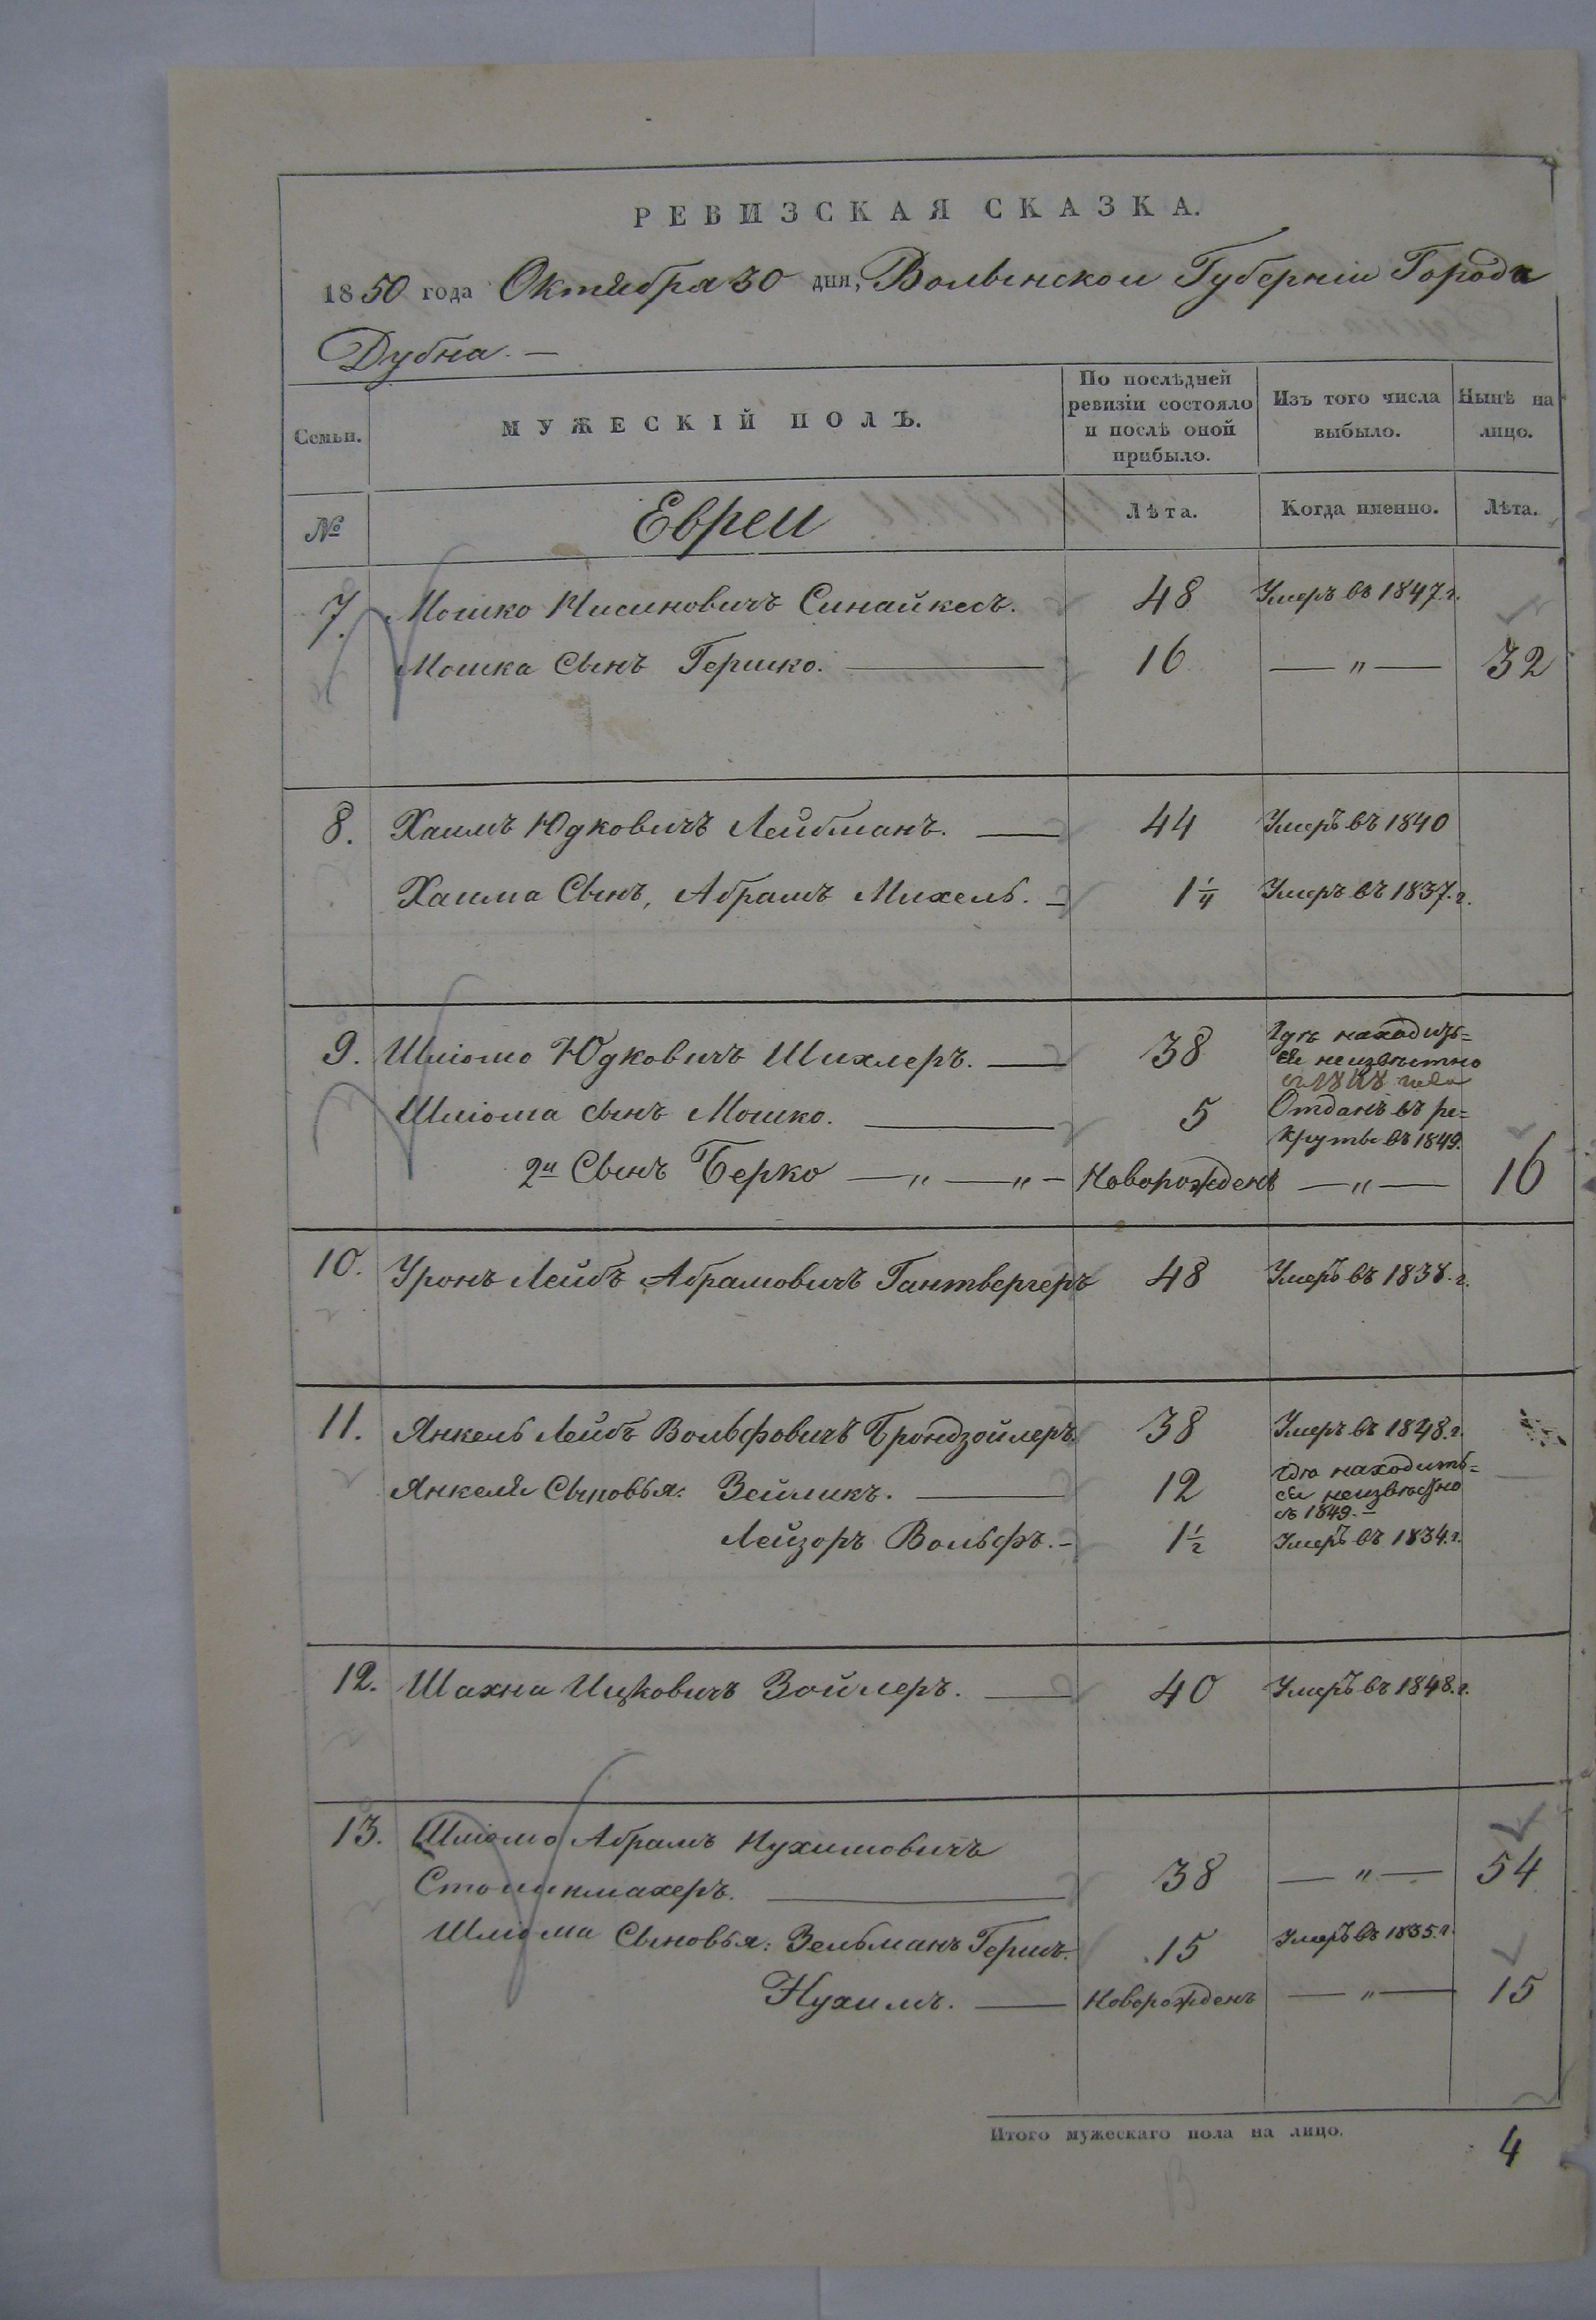 РЕВИЗСКАЯ СКАЗКА.
1850 года Октября 30 дня, Волынской Губерніи Города
Дубна. —
Семьи. МУЖЕСКІЙ ПОЛЪ. По послѣдней ревизіи состояло и послѣ оной прибыло. Изъ того числа выбыло. Нынѣ на лицо.
№ Евреи Лѣта. Когда именно. Лѣта.
7. Мошко Нисиновичъ Синайкесъ. 48 Умеръ въ 1847.г.
Мошка Сынъ Гершко. — 16 — " — 32
8. Хаимъ Юдковичъ Лейбманъ. — 44 Умеръ въ 1840
Хаима Сынъ, Абрамъ Михель. — 1 1/4 Умеръ въ 1837.г.
9. Шліомо Юдковичъ Шихлеръ. — 38 Гдѣ находить=
ся неизвѣстно
съ 1848 года
Шліома сынъ Мошко. — 5 Отданъ въ ре=
круты въ 1849.
2й Сынъ Берко — " — " — Новорожденъ — " — 16
10. Уронъ Лейбъ Абрамовичъ Гантвергеръ 48 Умеръ въ 1838.г.
11. Янкель Лейбъ Вольфовичъ Брондзойлеръ 38 Умеръ въ 1848.г.
Янкеля Сыновья: Зейликъ. — 12 гдѣ находить=
ся неизвѣстно
съ 1849. —
Лейзоръ Вольфъ. — 1 1/2 Умеръ въ 1834.г.
12. Шахна Ицковичъ Зойлеръ. — 40 Умеръ въ 1848.г.
13. Шліомо Абрамъ Нухимовичъ
38 — " — 54
Шліома Сыновья: Зельманъ Гершъ. 15 Умеръ въ 1835.г.
Нухимъ. — Новорожденъ — " — 15
Итого мужескаго пола на лицо. 4